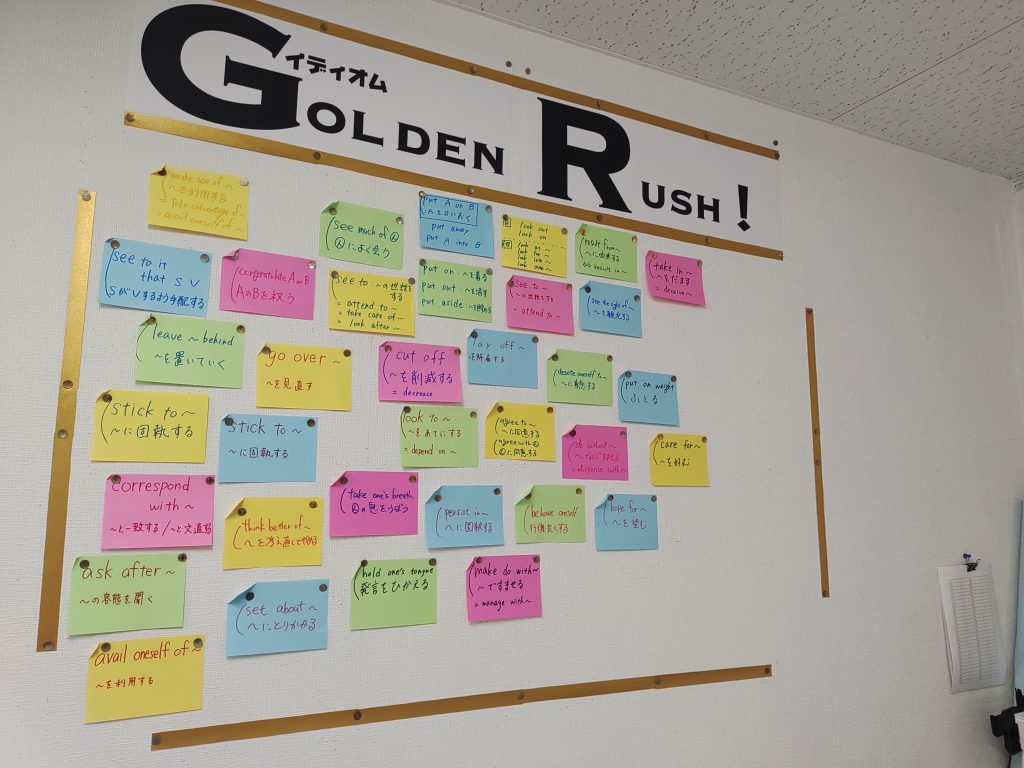 イディオム
GOLDEN RUSH!
make use of ~
~を利用する
= take advantage of ~
= avail oneself of ~
see much of Ⓐ
Ⓐによく会う
put A on B
AをBにおく
put away
put A into B
look out
look on
look at ~
look for ~
look into ~
look over ~
result from~
~に由来する
result in ~
take in ~
~をだます
= deceive~
see to it
that S V
SがVするよう手配する
congratulate A on B
AのBを祝う
see to : ~の世話を
する
= attend to ~
= take care of ~
= look after ~
put on : ~を着る
put out : ~を消す
put aside :
see to ~
~の世話をする
= attend to ~
see the sight of~
~を観光する
leave ~ behind
~を置いていく
go over ~
~を見直す
cut off ~
~を削減する
= decrease
lay off ~
~を解雇する
devote oneself to ~
put on weight
ふとる
stick to ~
~に固執する
stick to ~
~に固執する
look to ~
~をあてにする
= depend on ~
agree to ~
~に同意する
agree with Ⓐ
Ⓐに同意する
do without ~
~なしですませる
= dispense with~
care for~
~を好む
correspond
with ~
~と一致する/~と文通する
think better of~
~を考え直してやめる
take one's breath
Ⓐの息をうばう
persist in~
~に固執する
behave oneself
行儀良くする
hope for ~
~を望む
ask after ~
~の容態を聞く
set about ~
~にとりかかる
hold one's tongue
発言をひかえる
make do with~
~ですませる
= manage with~
avail oneself of ~
~を利用する